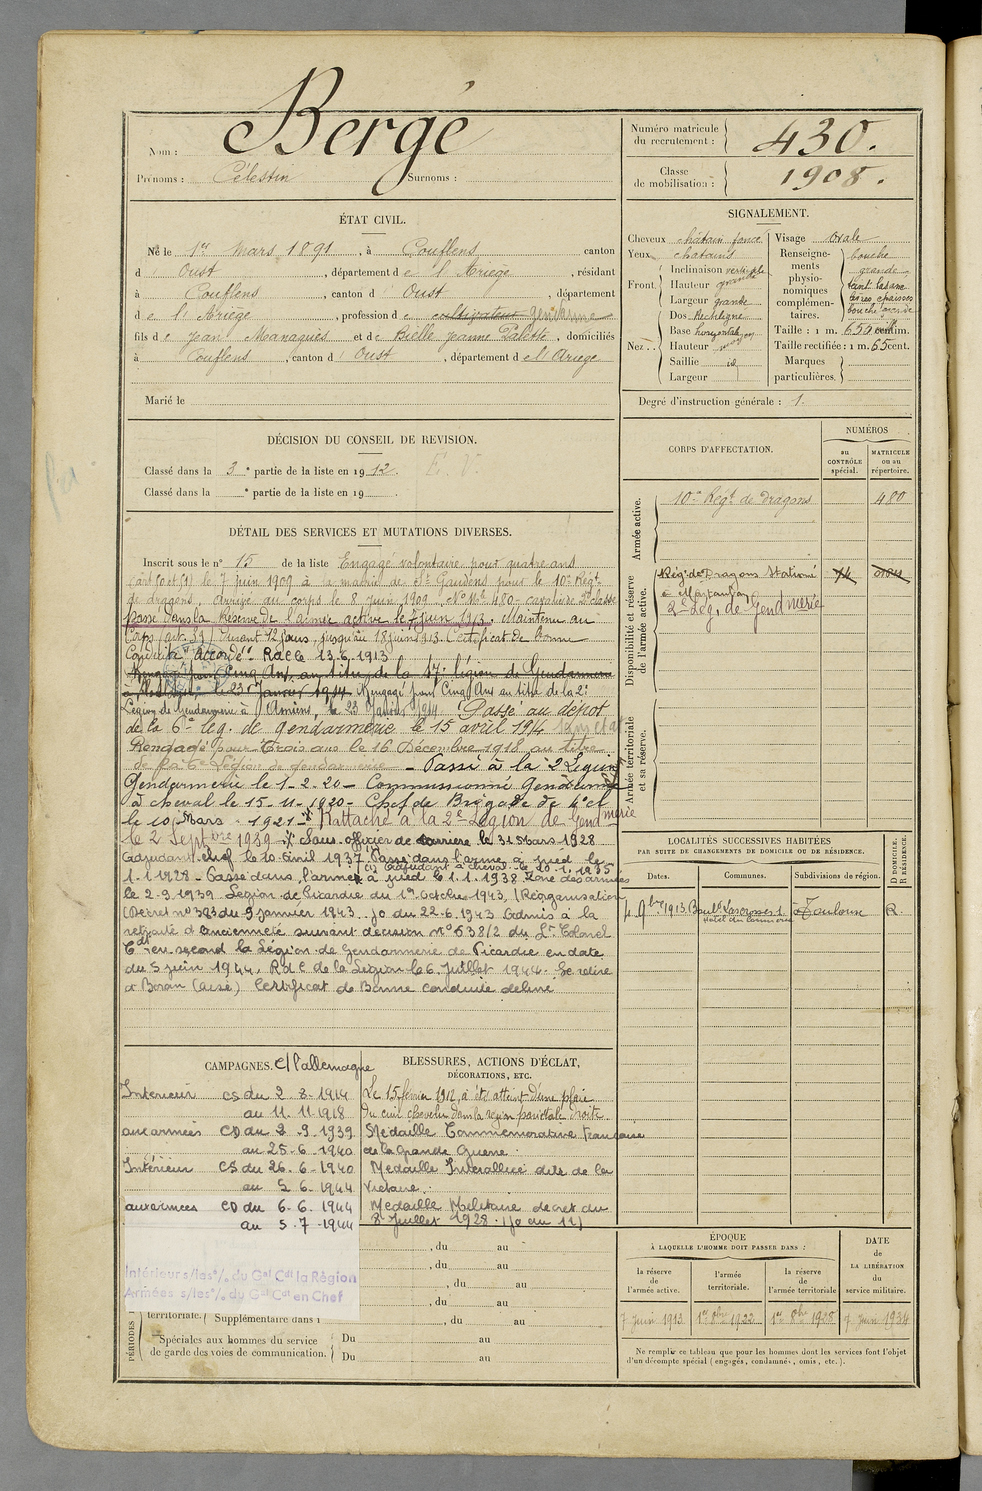 Nom : Bergé
Prénoms : Célestin Surnoms :
Numéro matricule du recrutement : 430.
Classe de mobilisation : 1908.
ÉTAT CIVIL.
Né le 1er mars 1891, à Couflens canton
d' Oust, département de l'Ariège, résidant
à Couflens, canton d' Oust, département
de l'Ariège, profession de cultivateur Gendarme
fils de jean Maragues et de Bielle jeanne Palette, domiciliés
à Couflens, canton d' Oust, département de l'Ariège
Marié le
SIGNALEMENT.
Cheveux châtain foncé
Yeux châtains
Front. Inclinaison verticale
Hauteur grande
Largeur grande
Nez. Dos Rectiligne
Base horizontale
Hauteur moyen
Saillie id
Largeur
Visage ovale
Renseignements physionomiques complémentaires. bouche
grande
teint basané
lèvres épaisses
Taille : 1 m. 650 centim.
Taille rectifiée : 1 m. 65 cent.
Marques particulières.
Degré d'instruction générale : 1.
DÉCISION DU CONSEIL DE REVISION.
Classé dans la 3e partie de la liste en 1912. E. V.
Classé dans la e partie de la liste en 19 .
DÉTAIL DES SERVICES ET MUTATIONS DIVERSES.
Inscrit sous le n° 15 de la liste Engagé volontaire pour quatre ans
le 7 juin 1909 à la mairie de St Gaudens pour le 10e Régt
de dragons, Arrivé au corps le 8 juin 1909. N° Mle 480 cavalier de 2e classe
passé dans la Réserve de l'armée active le 7 juin 1913. Maintenu au
Corps (art. 39) durant 12 jours, jusqu'au 18 juin 1913. Certificat de bonne
Conduite "Accordé". R de C 13.6.1913
Rengagé pour Cinq Ans au titre de la 17e légion de Gendarmerie
le 23 Janvier 1914 Rengagé pour Cinq Ans au titre de la 2e
Légion de Gendarmerie à Amiens, le 23 Janvier 1914. Passé au dépôt
de la 6e leg. de gendarmerie le 15 avril 1914
Rengagé pour Trois ans le 16 Décembre 1918 au titre
de la 6e Légion de gendarmerie - Passé à la 2 Légion
Gendarmerie le 1-2-20 - Commissionné Gendarme
à cheval le 15-11-1920 - Chef de Brigade de 4e cl
le 10 Mars 1921 - Rattaché à la 2e Légion de Gendmerie
le 2 Septbre 1939 Sous officier de carrière le 31 Mars 1928
Adjudant chef le 10 avril 1937 Passé dans l'arme à pied le
(1) Adjudant à cheval le 10.1.1935
1-1-1928 - Passé dans l'arme à pied le 1.1.1938 Zone des armées
le 2-9-1939 Légion de Picardie du 1er octobre 1943, (Réorganisation
(Décret n° 383 du 9 janvier 1943. Jo du 22-6-1943 Admis à la
retraite d'ancienneté suivant décision N° 6381/2 du Lt Colonel
Cdt en second la Légion de Gendarmerie de Picardie en date
du 5 juin 1944. R d C de la Légion le 6 Juillet 1944. Se retire
à Boran (Oise) Certificat de Bonne conduite délivré
CORPS D'AFFECTATION.
NUMÉROS
au CONTRÔLE spécial.
MATRICULE ou au répertoire.
Armée active.
10e Régt de Dragons 480
Disponibilité et réserve de l'armée active.
Régt de Dragons Stationné
à Montauban
2e Leg. de Gendmerie
Armée territoriale et sa réserve.
LOCALITÉS SUCCESSIVES HABITÉES
PAR SUITE DE CHANGEMENTS DE DOMICILE OU DE RÉSIDENCE.
Dates. Communes. Subdivisions de région. D DOMICILE. R RÉSIDENCE.
4 9bre 1913 Boult Lascrosses 1. à Toulouse R.
Hotel du Commerce
CAMPAGNES. c/ l'allemagne
Intérieur CS du 2-8-1914
au 11.11.1918
aux armées CD du 2-9-1939
au 25-6-1940
Intérieur CS du 26-6-1940
au 5 6-1944
aux armées CD du 6-6-1944
au 5-7-1944
Intérieur s/les % du Gal Cdt la Région
Armées s/les % du Gal Cdt en Chef
BLESSURES, ACTIONS D'ÉCLAT, DÉCORATIONS, ETC.
Le 15 février 1912, a été atteint d'une plaie
du cuir chevelu dans la région pariétale droite.
Médaille Commémorative française
de la Grande Guerre.
Médaille Interalliée dite de la
Victoire.
Médaille Militaire décret du
8 Juillet 1928. (Jo du 11)
, du au
, du au
, du au
, du au
PÉRIODES
territoriale. Supplémentaire dans l , du au
Spéciales aux hommes du service de garde des voies de communication. Du au
Du au
ÉPOQUE
À LAQUELLE L'HOMME DOIT PASSER DANS :
la réserve de l'armée active. l'armée territoriale. la réserve de l'armée territoriale
DATE de LA LIBÉRATION du service militaire.
7 juin 1913 1er 8bre 1922 1er 8bre 1928 7 juin 1934
Ne remplir ce tableau que pour les hommes dont les services font l'objet
d'un décompte spécial (engagés, condamnés, omis, etc.).